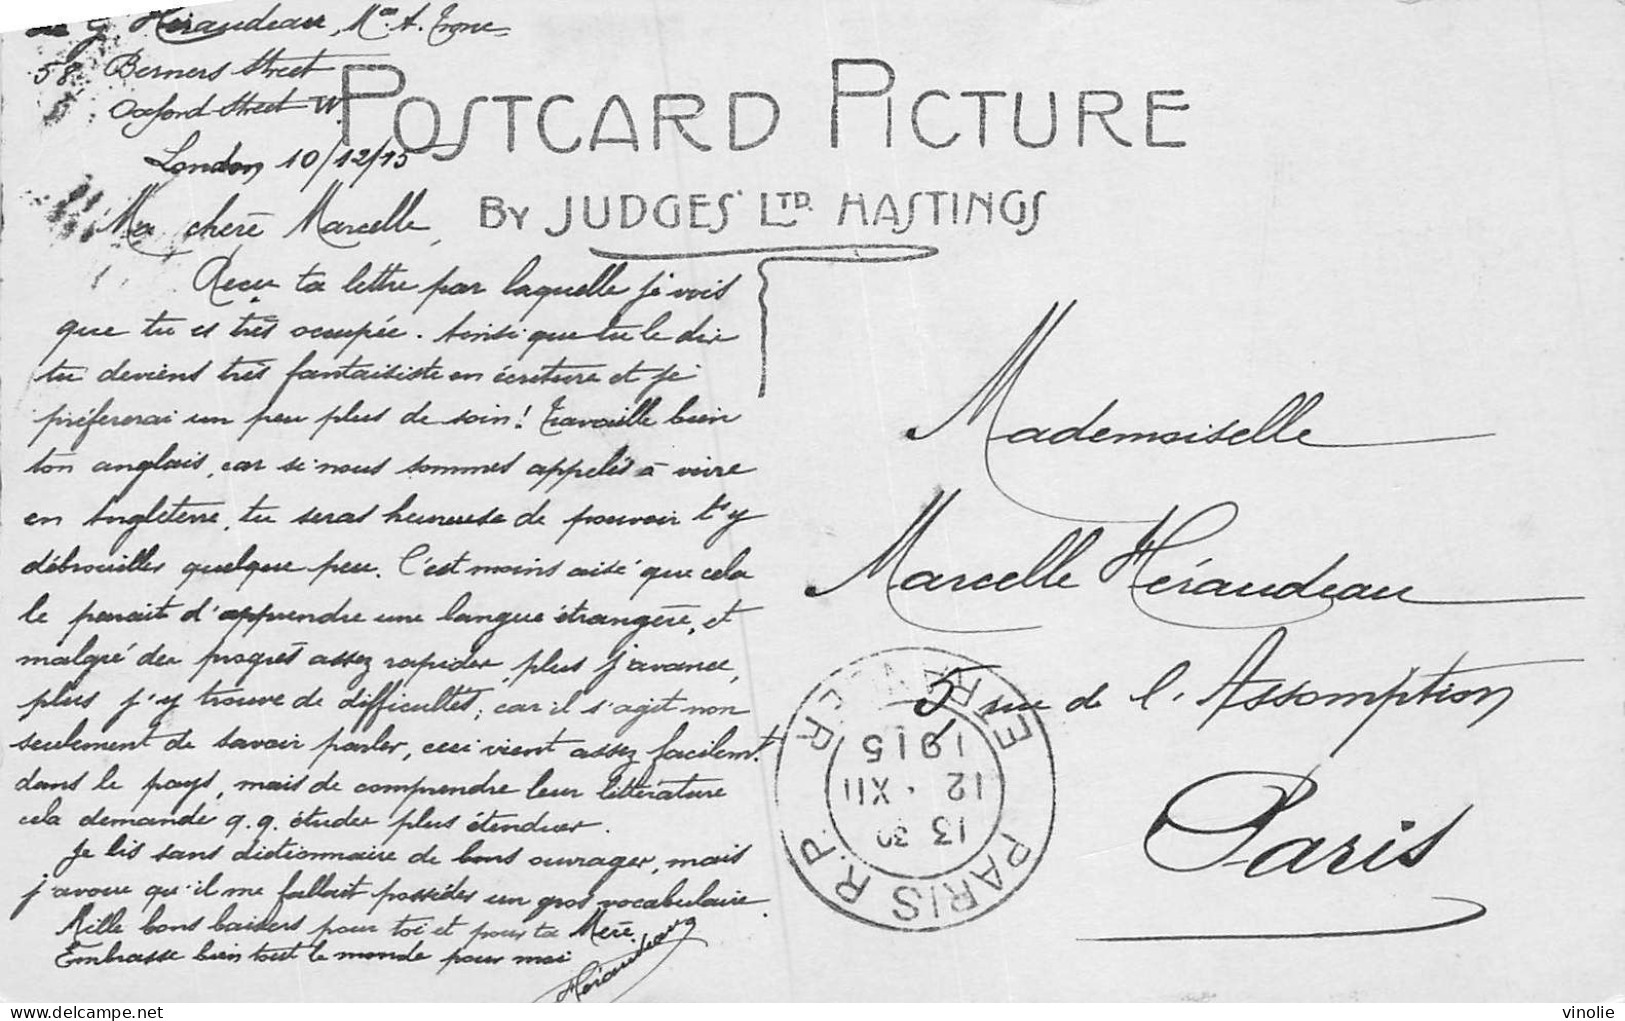 G. Héraudeau, Mon A. Trone
58 Berners Street
Oxford Street W.
London 10/12/15
POSTCARD PICTURE
BY JUDGES' LTD. HASTINGS
Ma chère Marcelle,
Reçu ta lettre par laquelle je vois
que tu es très occupée. Ainsi que tu le dis
tu deviens très fantaisiste en écriture et je
préfererai un peu plus de soin! Travaille bien
ton anglais, car si nous sommes appelés à vivre
en Angleterre, tu seras heureuse de pouvoir t'y
débrouiller quelque peu. C'est moins aisé que cela
le parait d'apprendre une langue étrangère, et
malgré des progrès assez rapides, plus j'avance,
plus j'y trouve de difficultés; car il s'agit non
seulement de savoir parler, ceci vient assez facilemt
dans le pays, mais de comprendre leur littérature
cela demande q.q. études plus étendues.
Je lis sans dictionnaire de bons ouvrages, mais
j'avoue qu'il me fallait posséder un gros vocabulaire.
Mille bons baisers pour toi et pour ta Mère.
Embrasse bien tout le monde pour moi
Héraudeau
Mademoiselle
Marcelle Héraudeau
5 rue de l'Assomption
Paris
PARIS R.P.
13 30
12 . XII
1915
vinolie